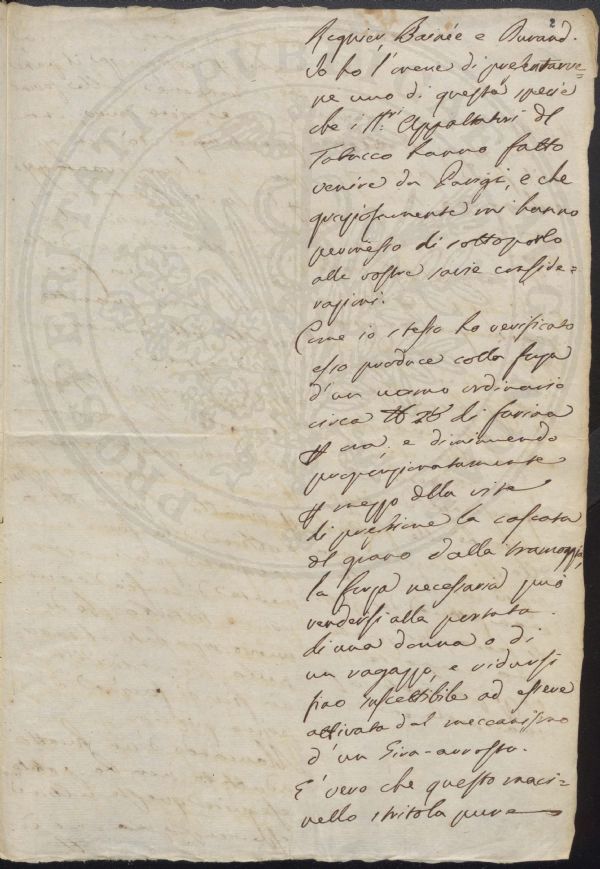 2
Regnier, Barnée e Durand.
Io ho l'onore di presentarve=
ne uno di questa specie
che i Sri. Appaltatori del
Tabacco hanno fatto
venire da Parigi, e che
graziosamente mi hanno
permesso di sottoporlo
alle vostre savie conside=
razioni.
Come io stesso ho verificato
esso produce colla forza
d'un uomo ordinario
circa ℔ 26 di farina
℔ ora, e diminuendo
proporzionatamente
℔ mezzo della vite
di pressione la cascata
del grano dalla tramoggia,
la forza necessaria può
rendersi alla portata
di una donna o di
un ragazzo, e ridursi
fino suscettibile ad essere
attivata dal meccanismo
d'un Gira-arrosto.
E' vero che questo maci=
nello stritola pure
PROSPERITATI